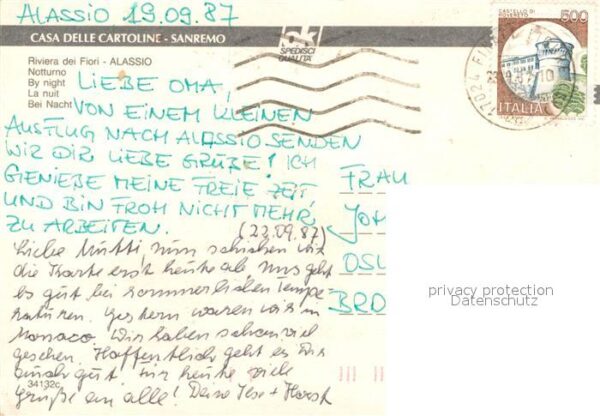 ALASSIO 19.09.87
CASA DELLE CARTOLINE - SANREMO
SPEDISCI
QUALITA'
CASTELLO DI
ROVERETO
500
ITALIA
Riviera dei Fiori - ALASSIO
Notturno
By night
La nuit
Bei Nacht
LIEBE OMA,
VON EINEM KLEINEN
AUSFLUG NACH ALASSIO SENDEN
WIR DIR LIEBE GRÜßE! ICH
GENIEßE MEINE FREIE ZEIT,
UND BIN FROH NICHT MEHR
ZU ARBEITEN.
(22.09.87)
FRAU
JOH
OSL
BRD
Liebe Mutti, nun schicken wir
die Karte erst heute ab, uns geht
es gut bei sommerlichen Tempe-
raturen. Gestern waren wir in
Monaco. Wir haben schon viel
gesehen. Hoffentlich geht es Dir
auch gut. Für heute viele
Grüße an alle! Deine Ilse + Horst
34132c
privacy protection
Datenschutz